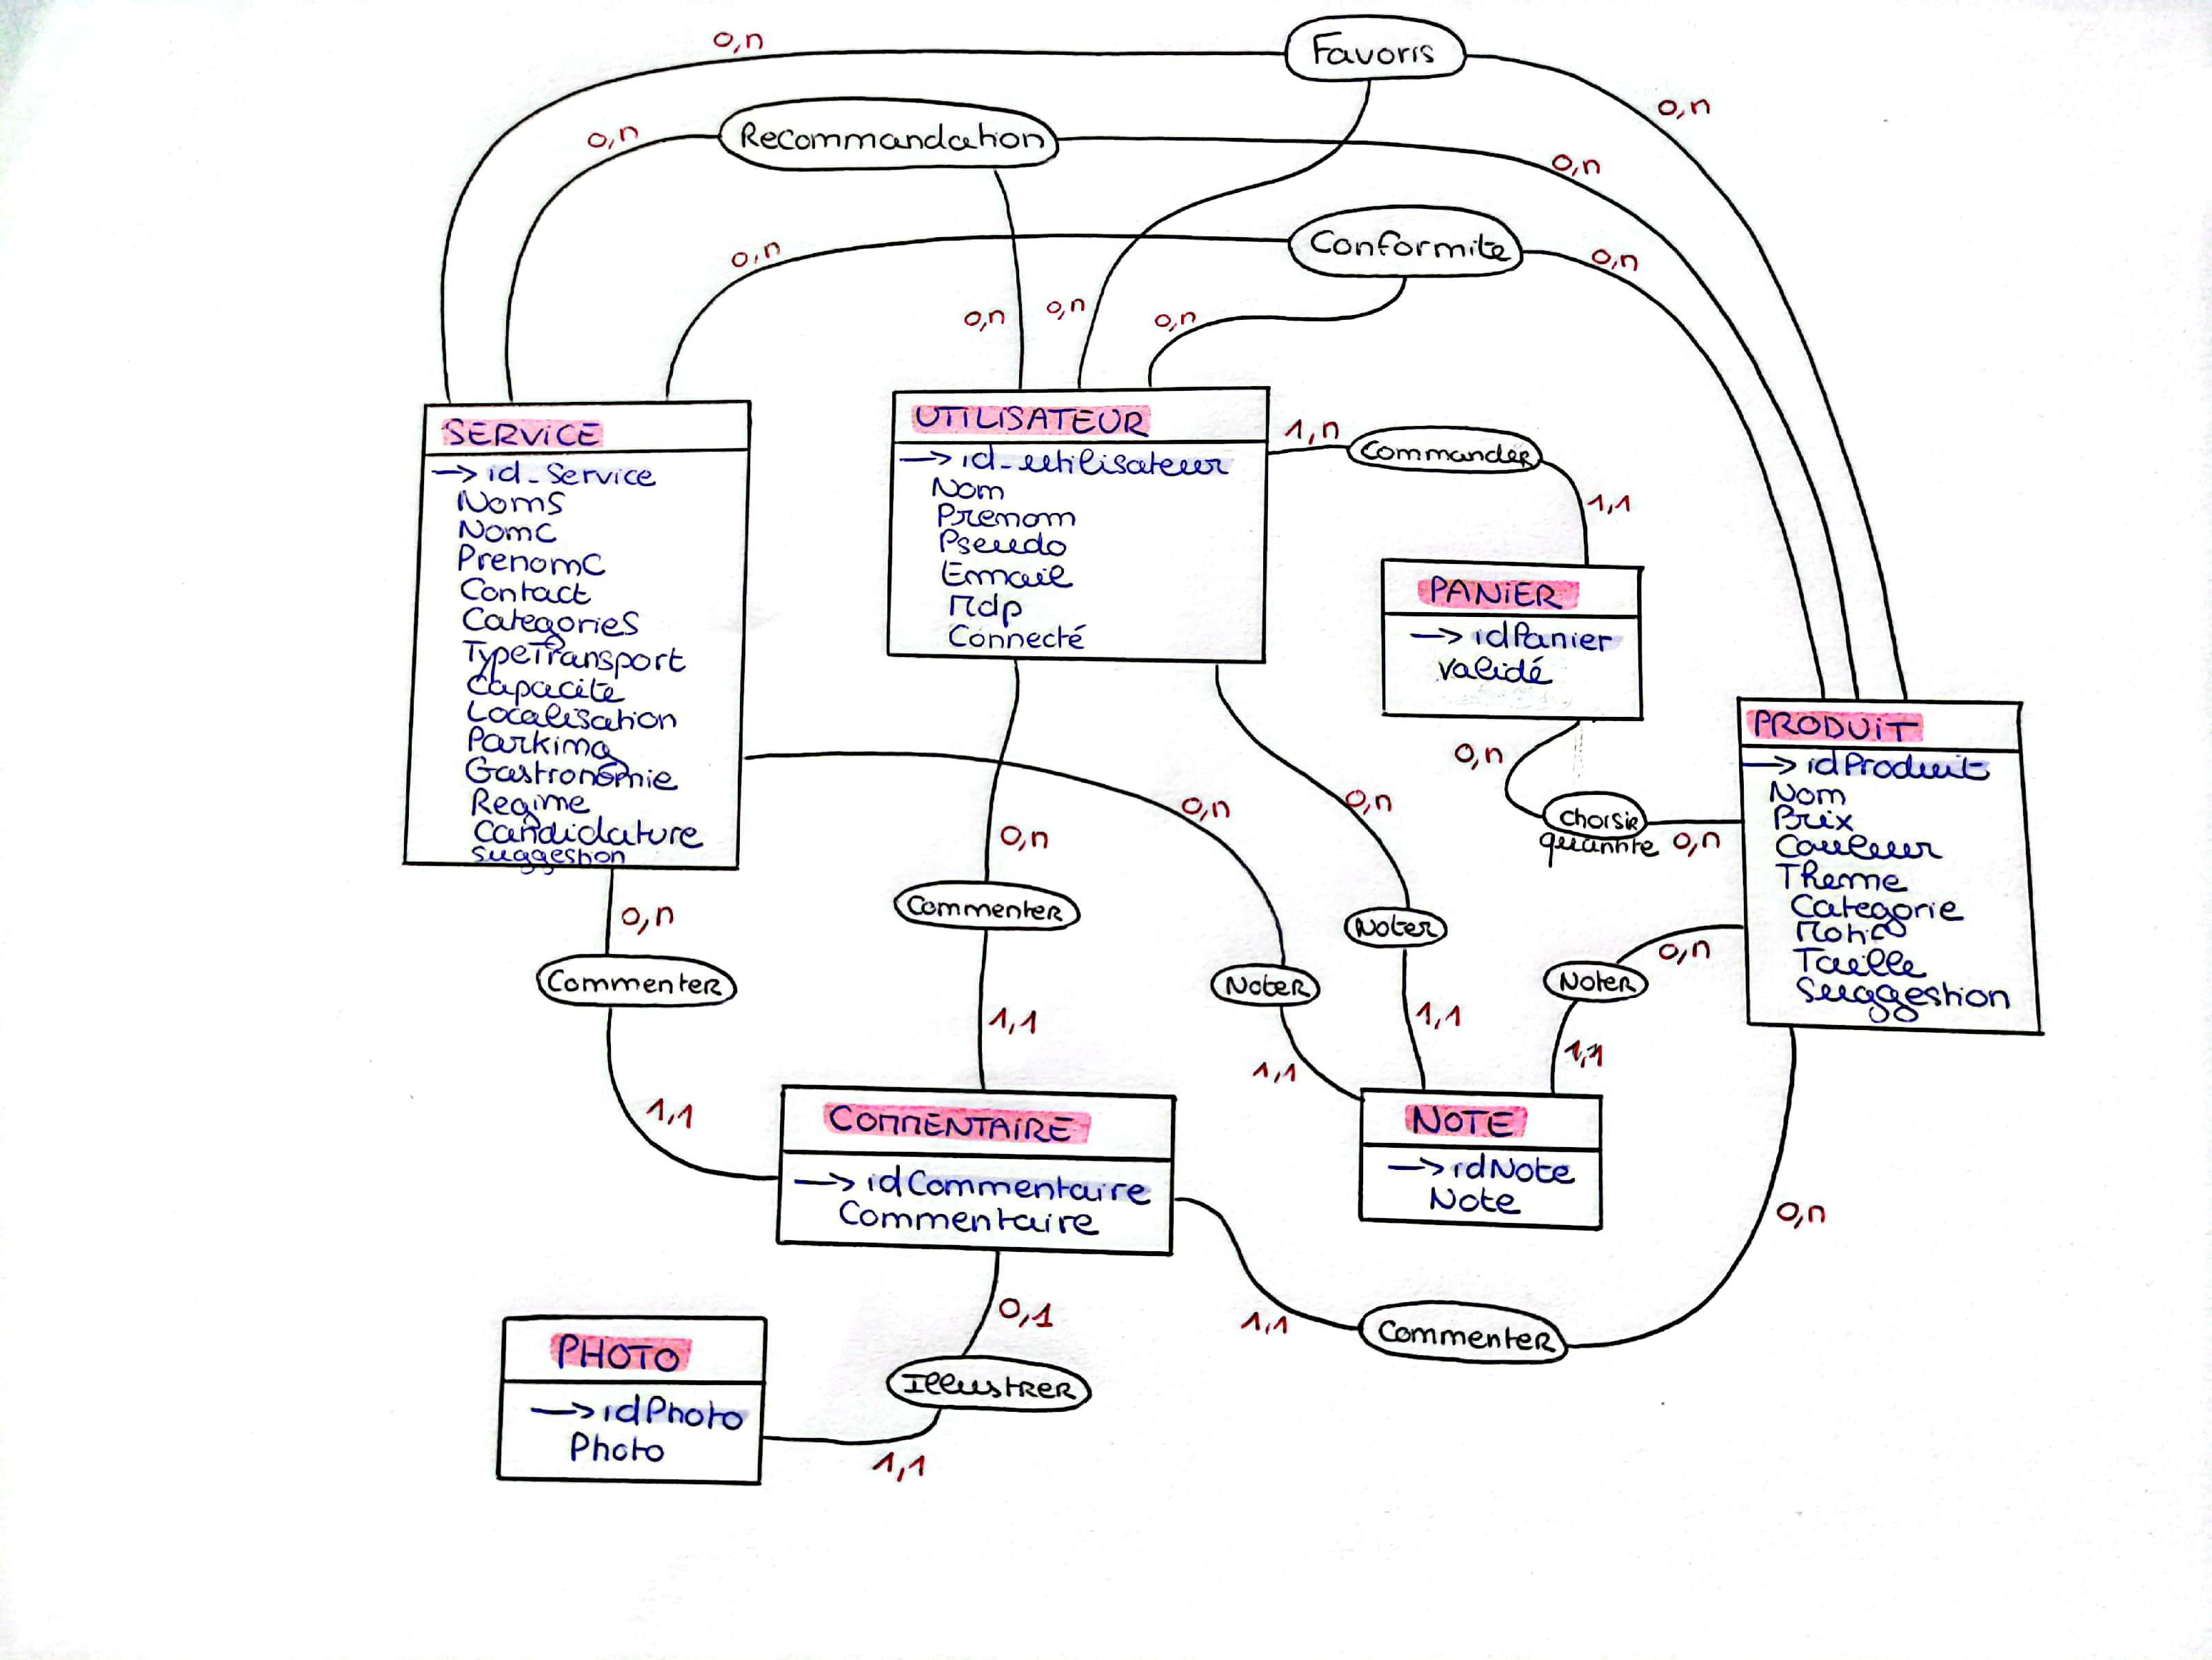 0,n
Favoris
0,n
0,n
Recommandation
0,n
0,n
Conformite
0,n
0,n
0,n
0,n
SERVICE
→ id_Service
NomS
NomC
PrenomC
Contact
CategorieS
TypeTransport
Capacite
Localisation
Parking
Gastronomie
Regime
Candidature
Suggestion
UTILISATEUR
→ id_utilisateur
Nom
Prenom
Pseudo
Email
Mdp
Connecté
1,n
Commander
1,1
PANIER
→ idPanier
validé
0,n
choisir
quantite
0,n
PRODUIT
→ idProduit
Nom
Prix
Couleur
Theme
Categorie
Motif
Taille
Suggestion
0,n
Commenter
1,1
0,n
Commenter
1,1
0,n
Noter
1,1
0,n
Noter
1,1
0,n
Noter
1,1
COMMENTAIRE
→ idCommentaire
Commentaire
NOTE
→ idNote
Note
0,n
Commenter
1,1
0,1
Illustrer
1,1
PHOTO
→ idPhoto
Photo